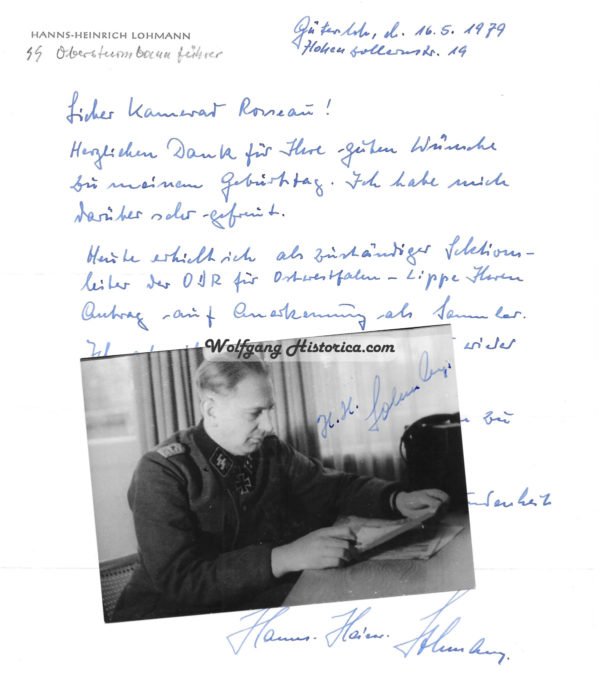 HANNS-HEINRICH LOHMANN
SS Obersturmbannführer
Gütersloh, d. 16.5.1979
Hohenzollernstr. 19
Lieber Kamerad Rosseau!
Herzlichen Dank für Ihre guten Wünsche
zu meinem Geburtstag. Ich habe mich
darüber sehr gefreut.
Heute erhielt ich als zuständiger Sektions-
leiter der OdR für Ostwestfalen-Lippe Ihren
Antrag auf Anerkennung als Sammler.
Ich wieder
Wolfgang Historica.com
H.H. Lohmann
zu
Hanns-Heinr. Lohmann.